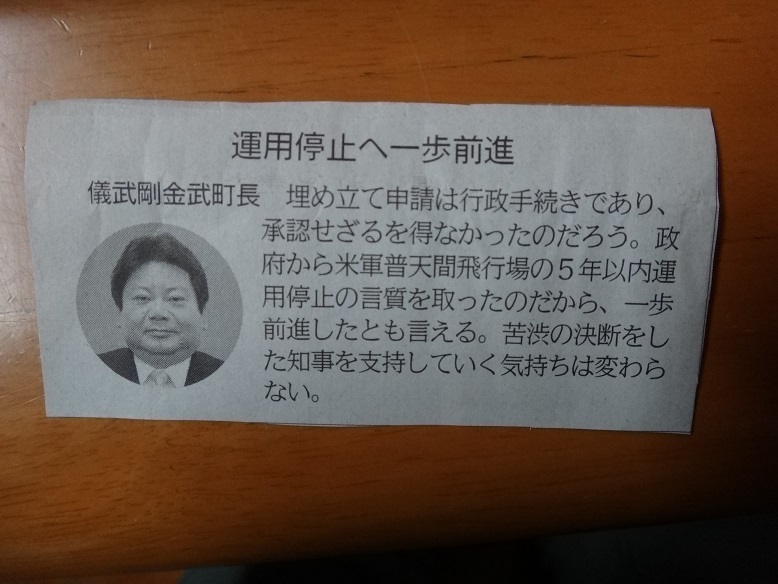 運用停止へ一歩前進
儀武剛金武町長　埋め立て申請は行政手続きであり、
承認せざるを得なかったのだろう。政
府から米軍普天間飛行場の５年以内運
用停止の言質を取ったのだから、一歩
前進したとも言える。苦渋の決断をし
た知事を支持していく気持ちは変わら
ない。